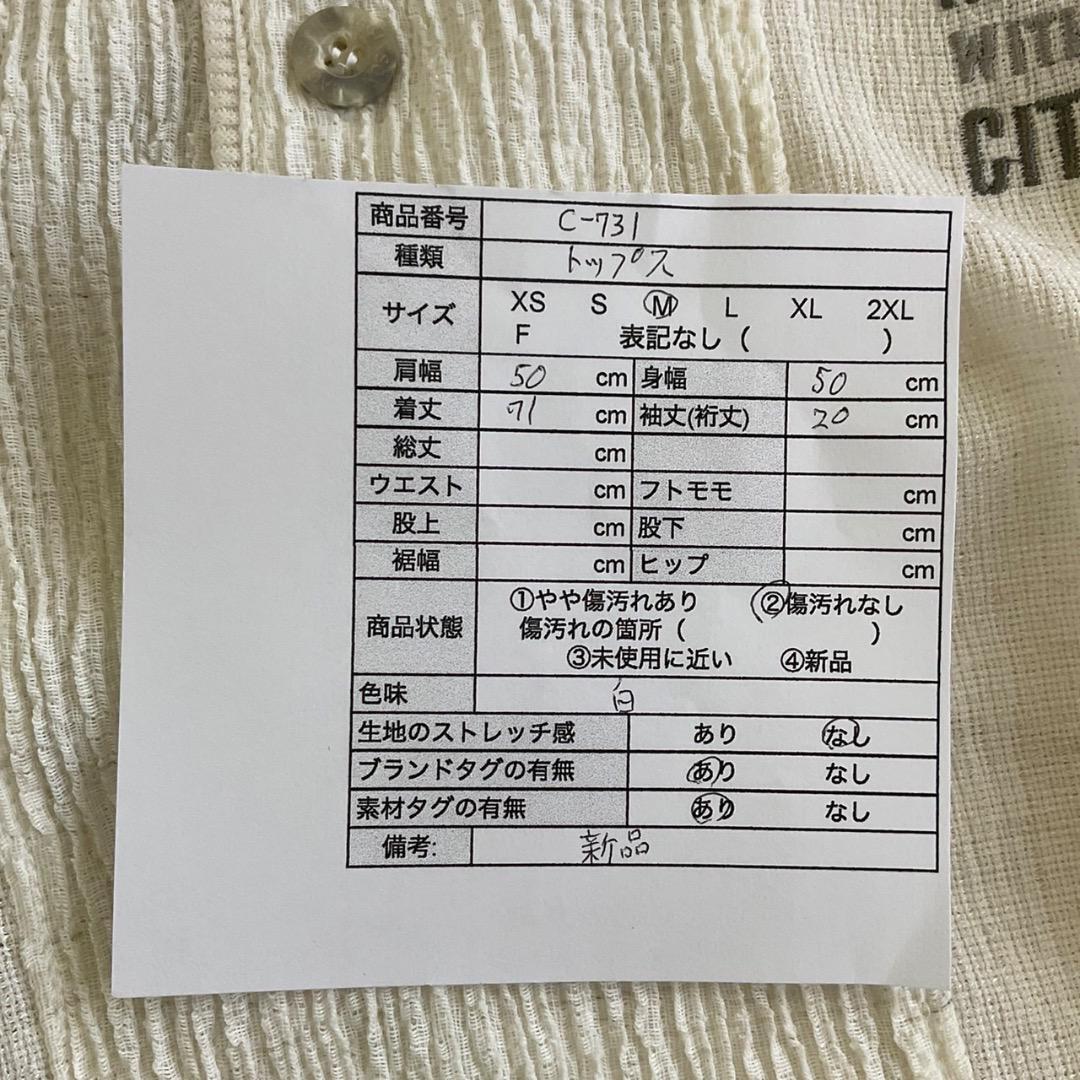 WITH
CIT
商品番号 C-731
種類 トップス
サイズ XS S M L XL 2XL
F 表記なし ( )
肩幅 50 cm 身幅 50 cm
着丈 71 cm 袖丈(裄丈) 20 cm
総丈 cm
ウエスト cm フトモモ cm
股上 cm 股下 cm
裾幅 cm ヒップ cm
商品状態 ①やや傷汚れあり ②傷汚れなし
傷汚れの箇所 ( )
③未使用に近い ④新品
色味 白
生地のストレッチ感 あり なし
ブランドタグの有無 あり なし
素材タグの有無 あり なし
備考: 新品